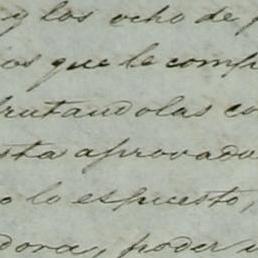 y los ocho de
os que le comp
frutandolas co
sta aprovado
o lo espuesto,
dora, poder